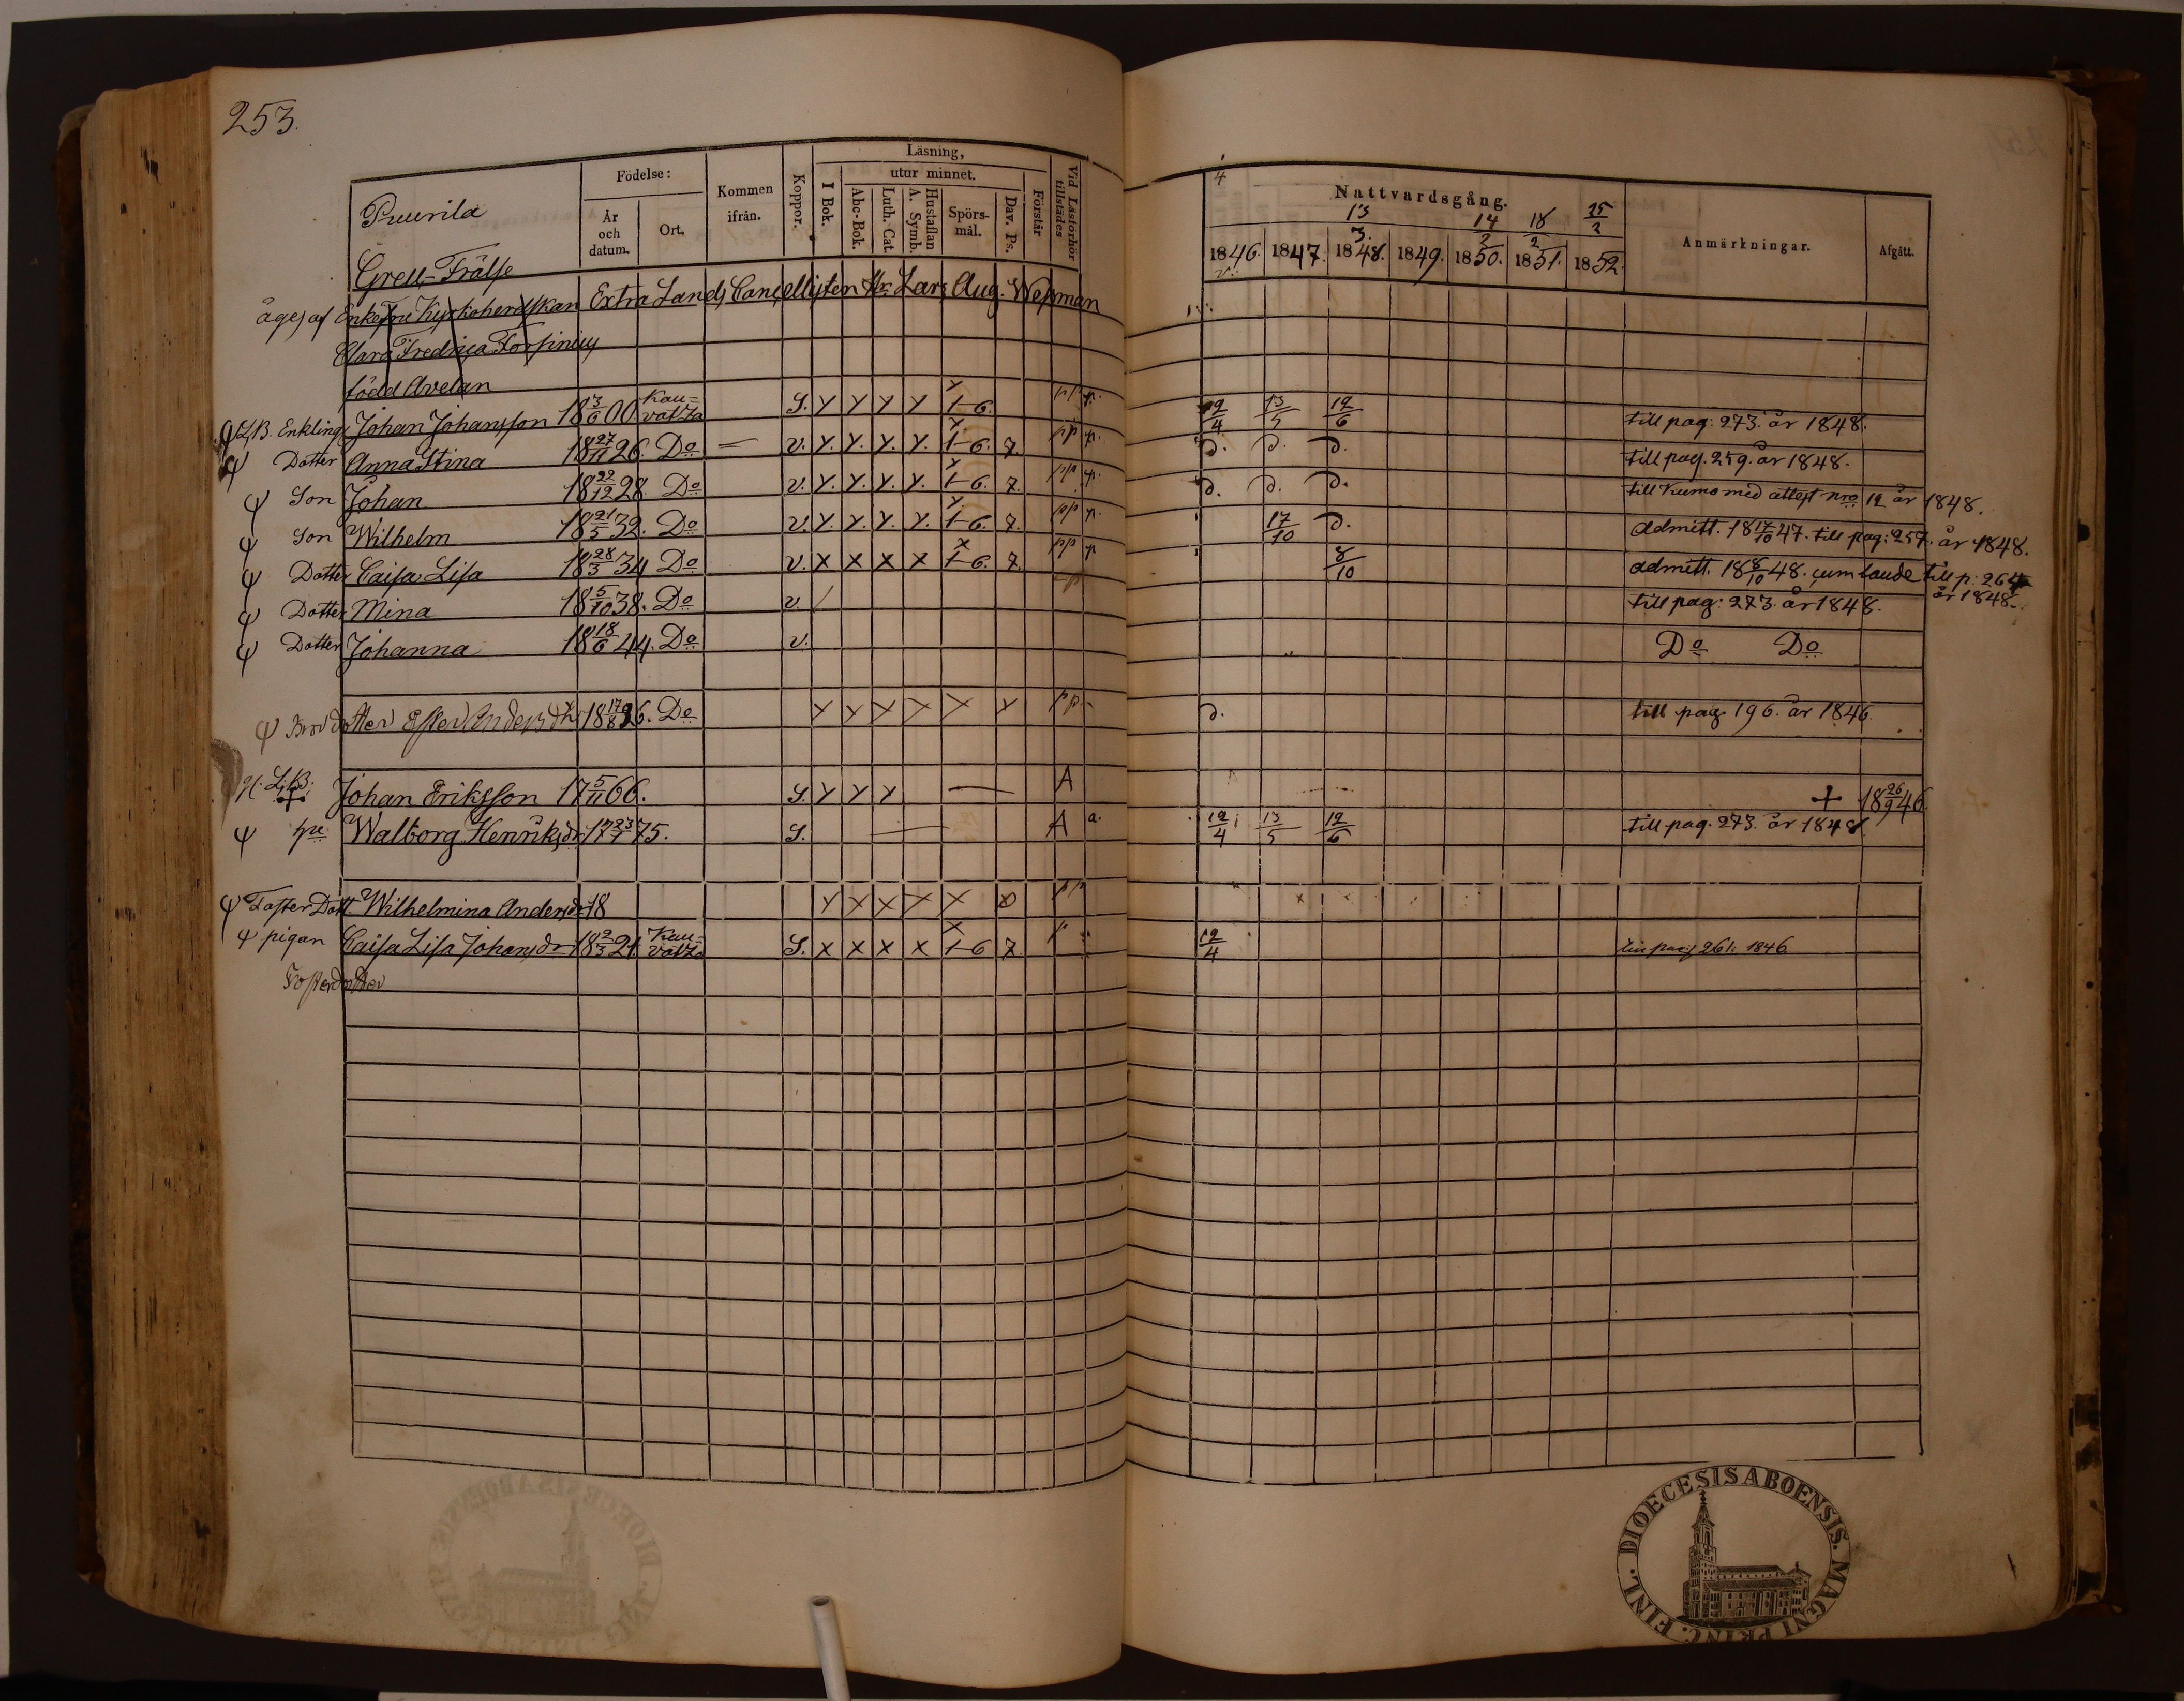 253.
Puurila
Grell-Frälse
Födelse:
År och datum.
Ort.
Kommen ifrån.
Koppor.
Läsning,
I Bok.
utur minnet.
Abc-Bok.
Luth. Cat.
Hustaflan A. Symb.
Spörs-mål.
Dav. Ps.
Förstår
Vid Läsförhör tillstädes
4
Nattvardsgång.
13 3. 14 2 18 2 25 2
1846. 1847. 1848. 1849. 1850. 1851. 1852.
Anmärkningar.
Afgått.
äges af Enkefru Kyrkoherdskan Extra Lands Cancellisten Hr Lars Aug. Wepman
Clara Fredrica Forsinius
född Avelan
Enkling Johan Johansson 18 3/6 00 Kauvatza S. Y Y Y Y 1-6. pp p. 12/4 13/5 12/6 till pag: 273. år 1848.
ψ Dotter Anna Stina 18 27/11 26. Do — v. Y. Y. Y. Y. 1-6. 7. pp p. D. D. D. till pag. 259. år 1848.
ψ Son Johan 18 22/12 28 Do v. Y. Y. Y. Y. 1-6. 7. pp p. D. D. D. till Kumo med attest nro 12 år 1848.
ψ Son Wilhelm 18 21/5 32. Do v. Y. Y. Y. Y. 1-6. 7. pp p. 17/10 D. admitt. 18 17/10 47. till pag: 257. år 1848.
ψ Dotter Caisa Lisa 18 28/3 34 Do v. X X X X 1-6. 7. pp p 8/10 admitt. 18 8/10 48. cum laude till p: 264 år 1848.
ψ Dotter Mina 18 5/10 38. Do v. / till pag: 273. år 1848.
ψ Dotter Johanna 18 18/6 44. Do v. Do Do
ψ Brordotter Ester Andersdr 18 17/8 26. Do Y Y X X X Y pp. D. till pag 196. år 1846.
Johan Eriksson 17 5/11 66. S. Y Y Y — A + 18 26/9 46
ψ Walborg Henriksdr 17 75. S. — A a. 12/4 13/5 12/6 till pag. 273. år 1848
ψ Foster Dott. Wilhelmina Andersdr 18 Y X X X X pp
ψ pigan Caisa Lisa Johansdr 18 2/3 21. Kauvatza S. X X X X 1-6 7. p 12/4 pag 261: 1846
Fosterdotter
DIOECESIS ABOENSIS. MAGNI PRINC. FINL.